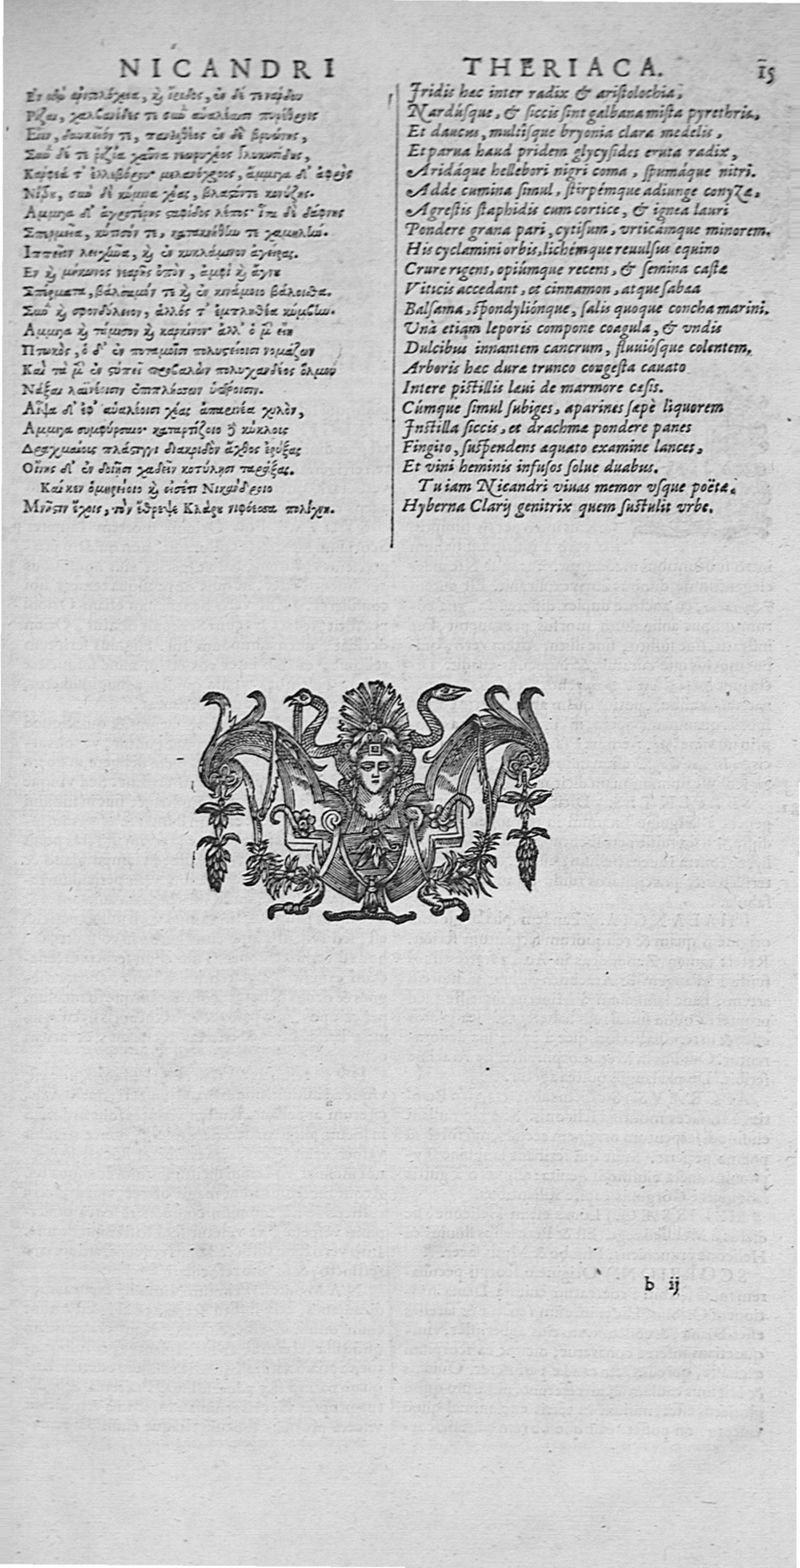 NICANDRI THERIACA. 15
Ῥίζαι, χαλβανίδες τε σὺν αὐαλέοισι πυρέθροις
Εἶεν, δαυκείου τε, παναλθέος ἐν δὲ βρυώνης,
Σὺν δέ τε ῥιζία χαῦνα νεωρυχέος γλυκυσίδης,
Κάρφεά τ' ἐλλεβόρου μελανόχροος, ἄμμιγα δ' ἀφρὸς
Νίτρου, σὺν δὲ κύμινα χέαις, κονύζης.
Αμμιγα δ' ἀγροτέρης σταφίδος λέπος· ἶσα δὲ δάφνης
Σπερμεῖα, κύτισόν τε, κατακνήθειν τε χαμηλήν.
Ιππείην λειχῆνα, καὶ ἐν κυκλάμινον ἀγείρας.
Εν καὶ μήκωνος ὀπὸν, ἀμφὶ καὶ ἄγνου
Σπέρματα, βάλσαμόν τε καὶ ἐν κινάμοιο
Σὺν καὶ σφονδύλειον, ἁλός τ' ἐμπληθέα κύμβην.
Αμμιγα καὶ τάμισον καὶ καρκίνον· ἀλλ' ὁ μὲν εἴη
Πτωκὸς, ὁ δ' ἐν ποταμοῖσι νομάζων
Καὶ τὰ μὲν ἐν πολυχανδέος ὅλμου
λαϊνέοισιν ἐπιπλήσσων ὑπέροισιν.
Αἶψα δ' ἐφ' αὐαλέοισι χέας χυλὸν,
Αμμιγα συμφύρσαιο· καταρτίζοιο δὲ κύκλους
Δραχμαίους πλάστιγγι διακριδὸν ἄχθος ἐρύξας
Οἴνης δ' ἐν δοιῇσι χαδεῖν κοτύλῃσι ταράξας.
Καί κεν ὁμηρείοιο καὶ εἰσέτι Νικάνδροιο
Μνῆστιν ἔχοις, τὸν ἔθρεψε Κλάρου νιφόεσσα πολίχνη.
Iridis hæc inter radix & aristolochia,
Nardúsque, & siccis sint galbana mista pyrethris,
Et daucus, multísque bryonia clara medelis,
Et parua haud pridem glycysides eruta radix,
Aridáque hellebori nigri coma, spumáque nitri.
Adde cumina simul, stirpémque adiunge conyzæ,
Agrestis staphidis cum cortice, & ignea lauri
Pondere grana pari, cytisum, vrticámque minorem,
His cyclamini orbis, lichémque reuulsus equino
Crure rigens, opiúmque recens, & semina castæ
Viticis accedant, et cinnamon, atque sabæa
Balsama, spondyliónque, salis quoque concha marini.
Vnà etiam leporis compone coagula, & vndis
Dulcibus innantem cancrum, fluuiósque colentem,
Arboris hæc duræ trunco congesta cauato
Intere pistillis leui de marmore cæsis.
Cúmque simul subiges, aparines sæpè liquorem
Instilla siccis, et drachmæ pondere panes
Fingito, suspendens æquato examine lances,
Et vini heminis infusos solue duabus.
Tu iam Nicandri viuas memor vsque poëtæ,
Hyberna Clarij genitrix quem sustulit vrbe.
b ij